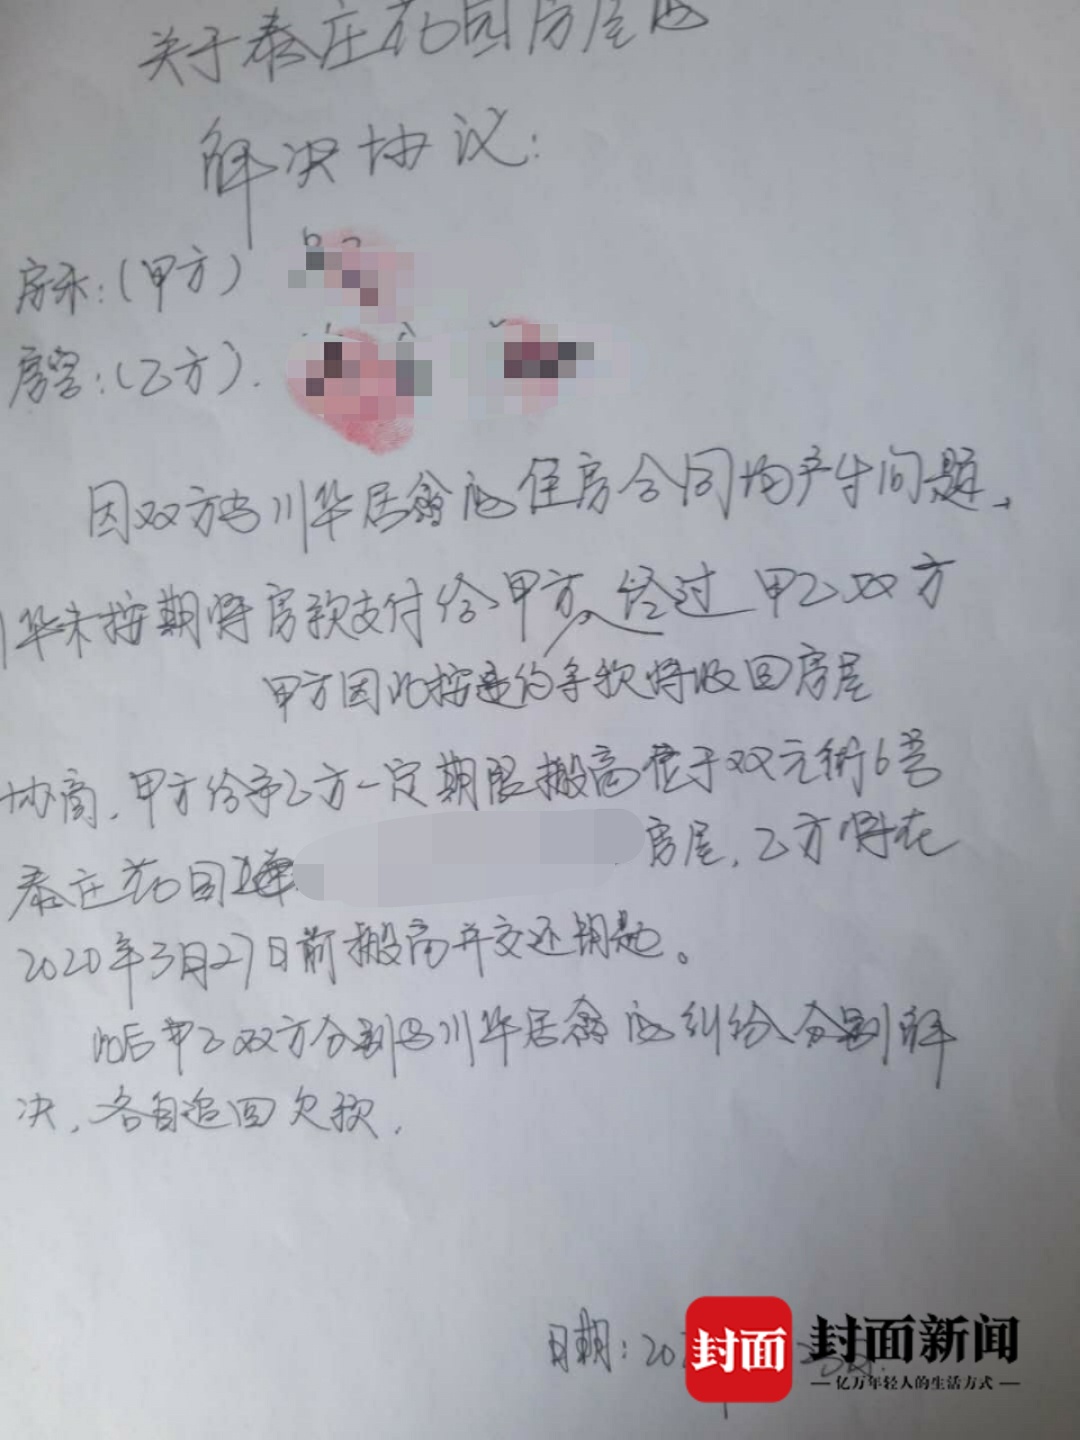 关于泰庄花园房屋的
解决协议：
房东：（甲方）
房客：（乙方）.
因双方与川华居鑫的住房合同均产生问题、
川华未按期将房款支付给甲方，经过甲乙双方
甲方因此按违约条款将收回房屋
协商，甲方给予乙方一定期限搬离位于双元街6号
泰庄花园 房屋，乙方将在
2020年3月27日前搬离并交还钥匙。
此后甲乙双方分别与川华居鑫的纠纷、分别解
决，各自追回欠款.
日期：20
封面
封面新闻
亿万年轻人的生活方式